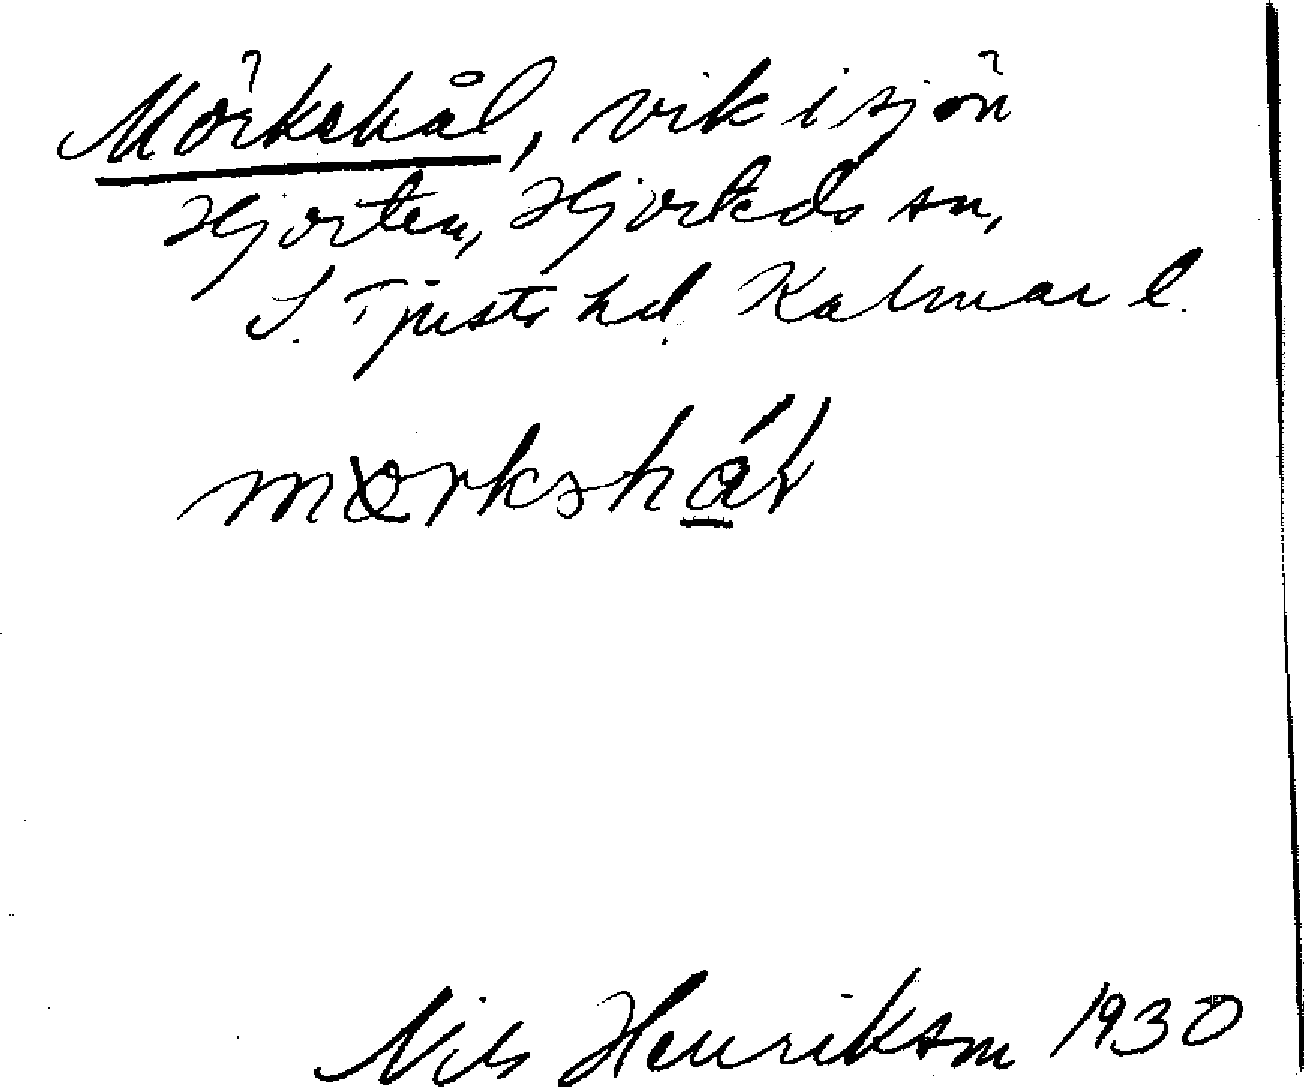 Mörkehål, vik i sjön
Hjorten, Hjorteds sn,
S. Tjusts hd. Kalmar l.
Nils Henrikson 1930